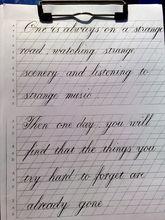 One is always on a strange
road, watching strange
scenery and listening to
strange music
Then one day, you will
find that the things you
try hard to forget are
already gone